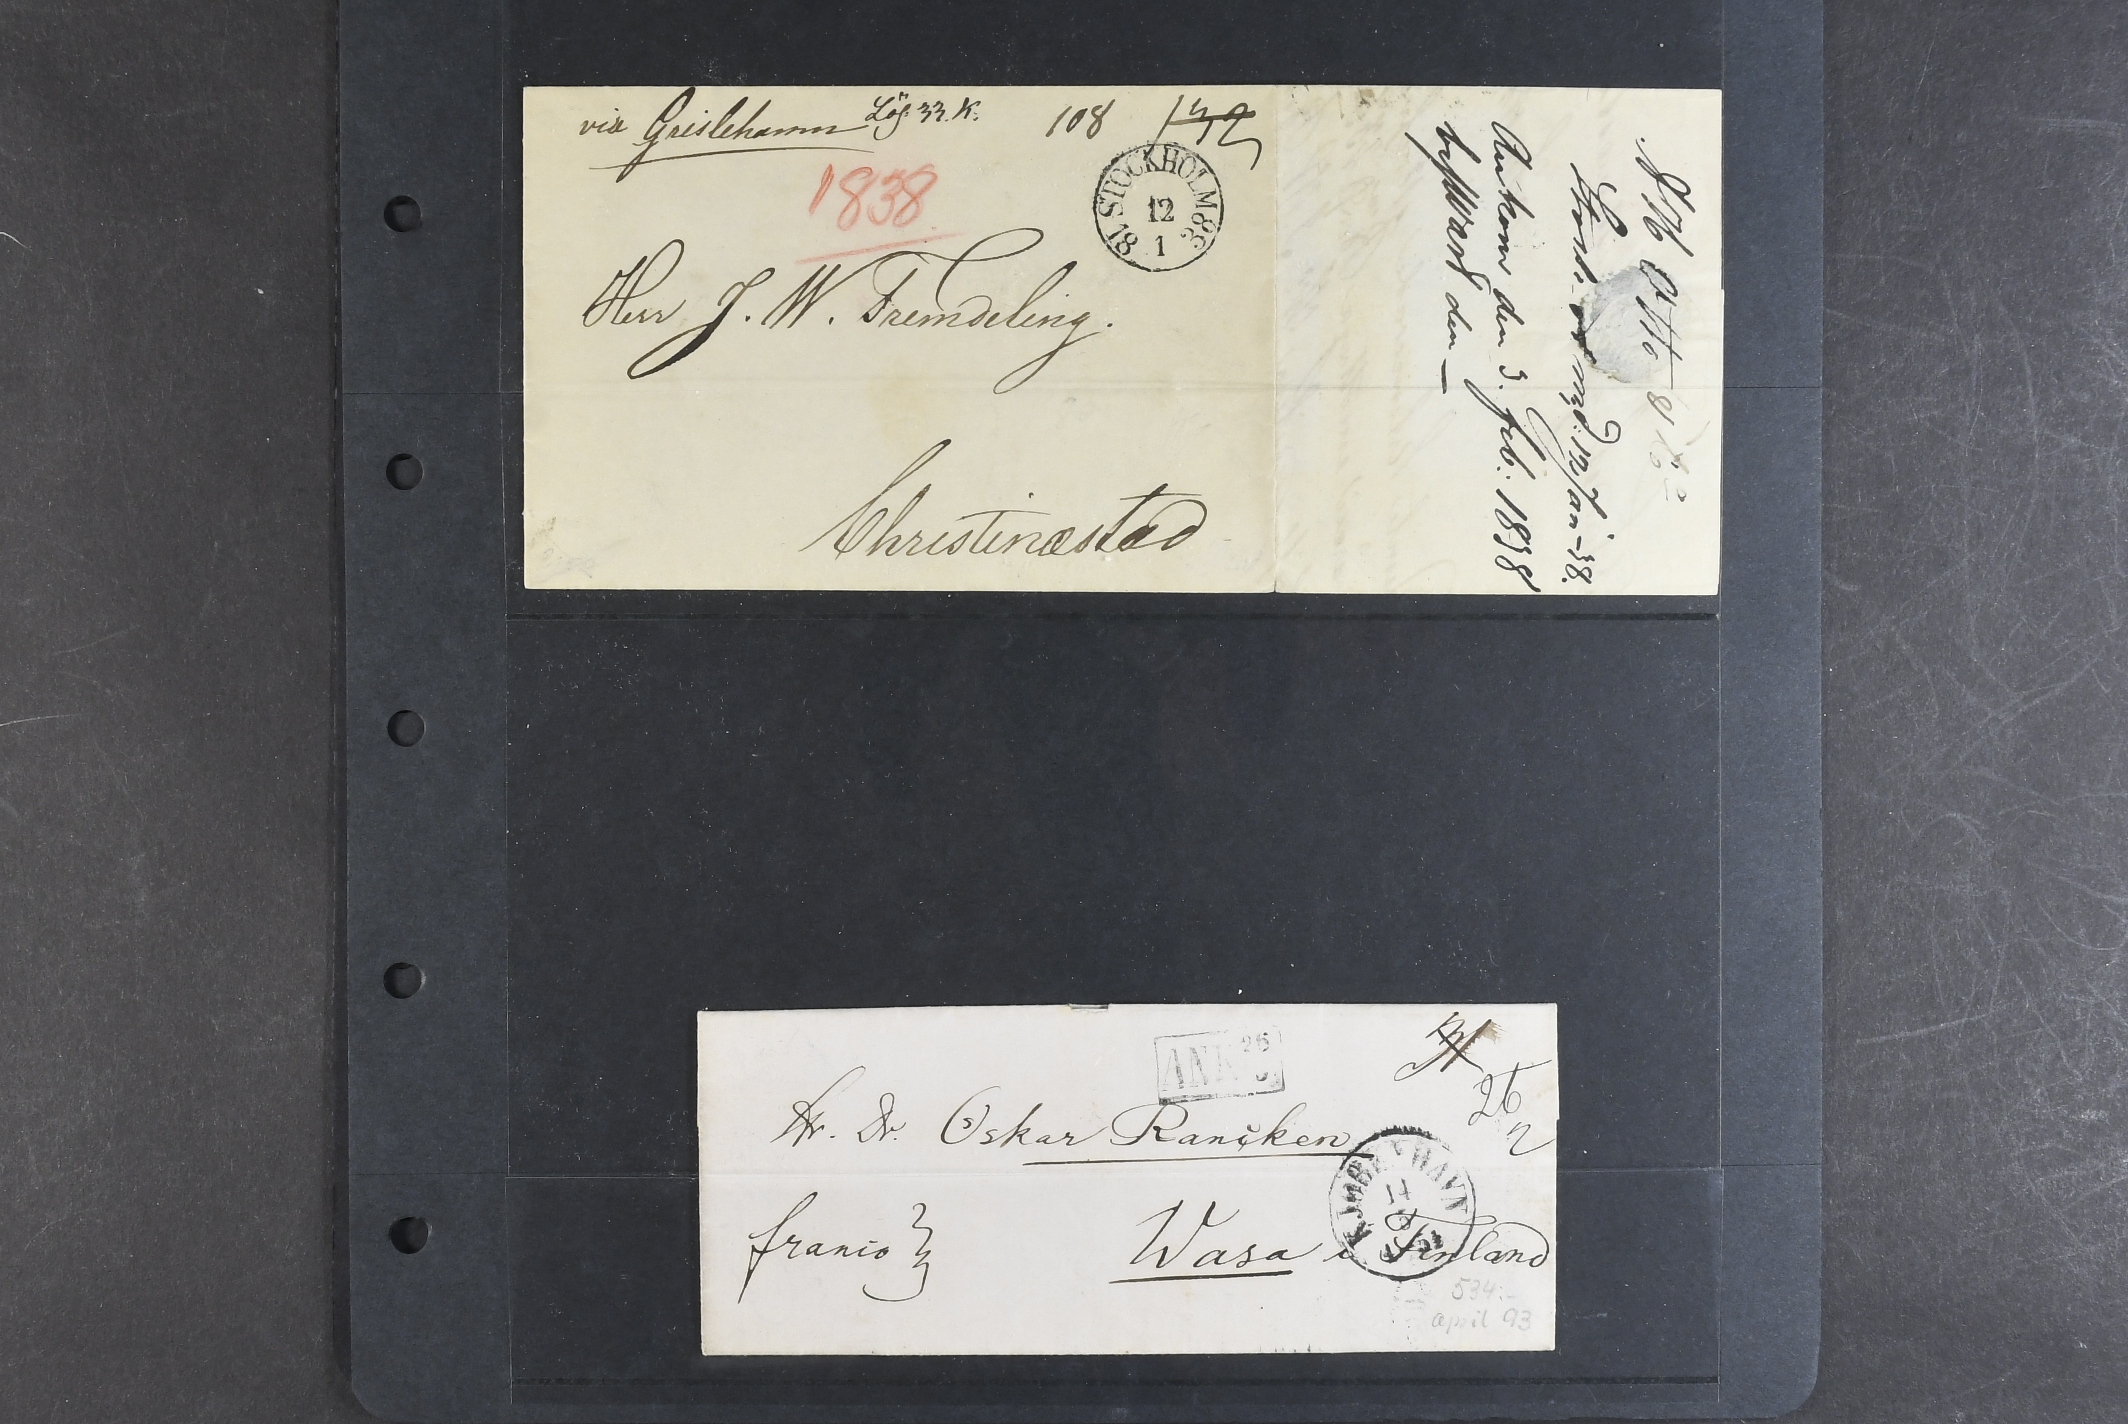 via Grislehamn Lös. 33. K. 108
1838
STOCKHOLM
12
1
18 38
Herr J. W. Fremdeling.
Christinæstad
Stock. med. 12 Jan -38.
Ankom den 3. feb. 1838
besward den —
ANK 26
Hr. Dr. Oskar Rancken
26
KJØBENHAVN
14
franco
Wasa i Finland
534:-
april 93